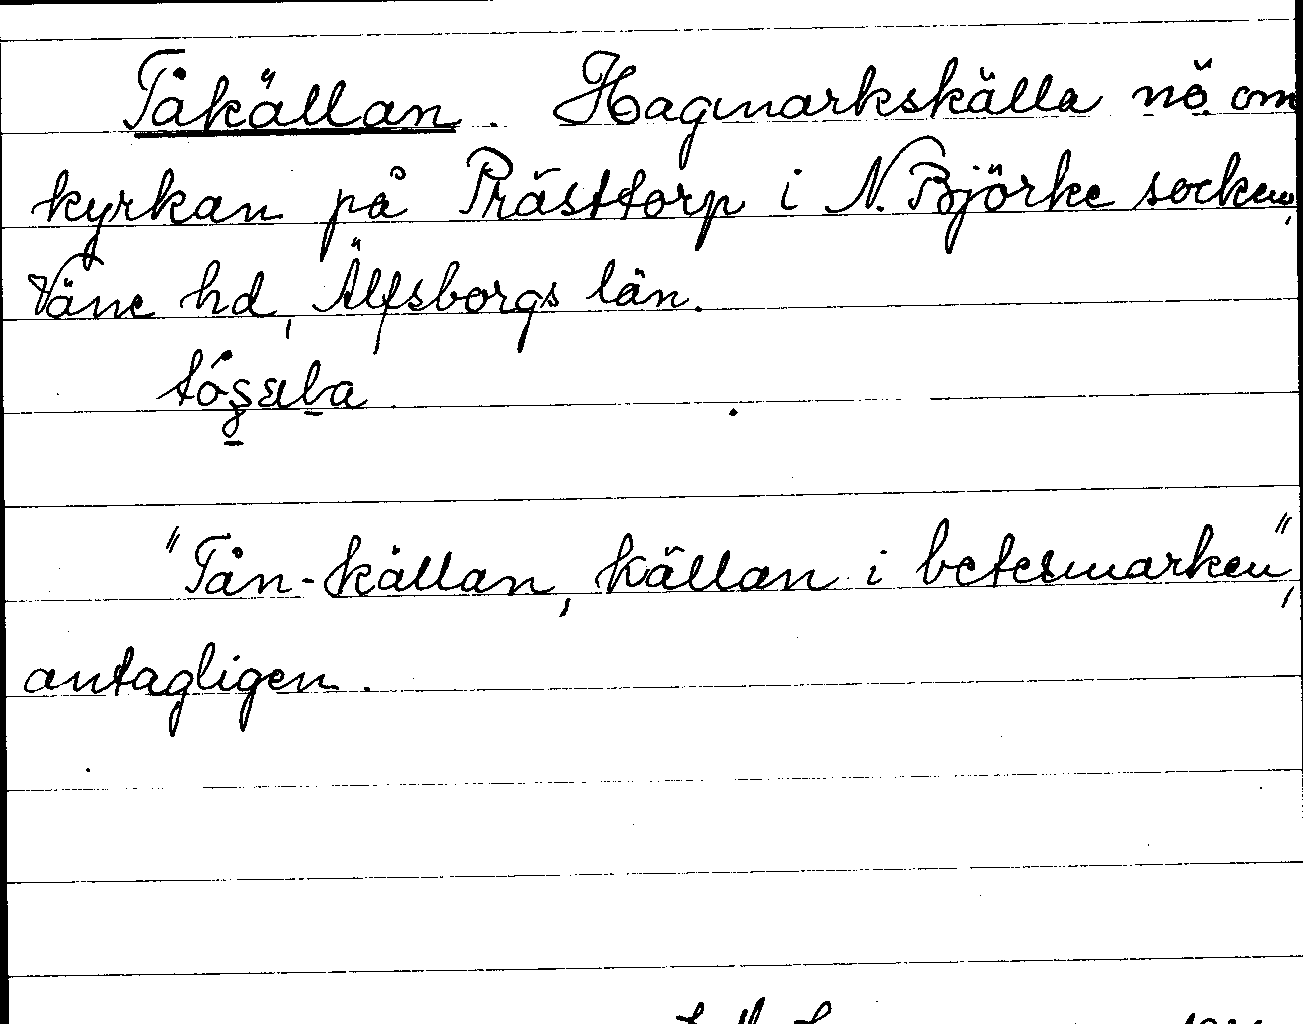 Tåkällan. Hagmarkskälla nö. om
kyrkan på Prästtorp i N. Björke socken,
Väne hd, Älfsborgs län.
"Tån-källan, källan i betesmarken",
antagligen.